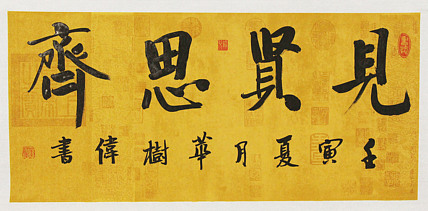 見賢思齊
壬寅夏月華樹偉書